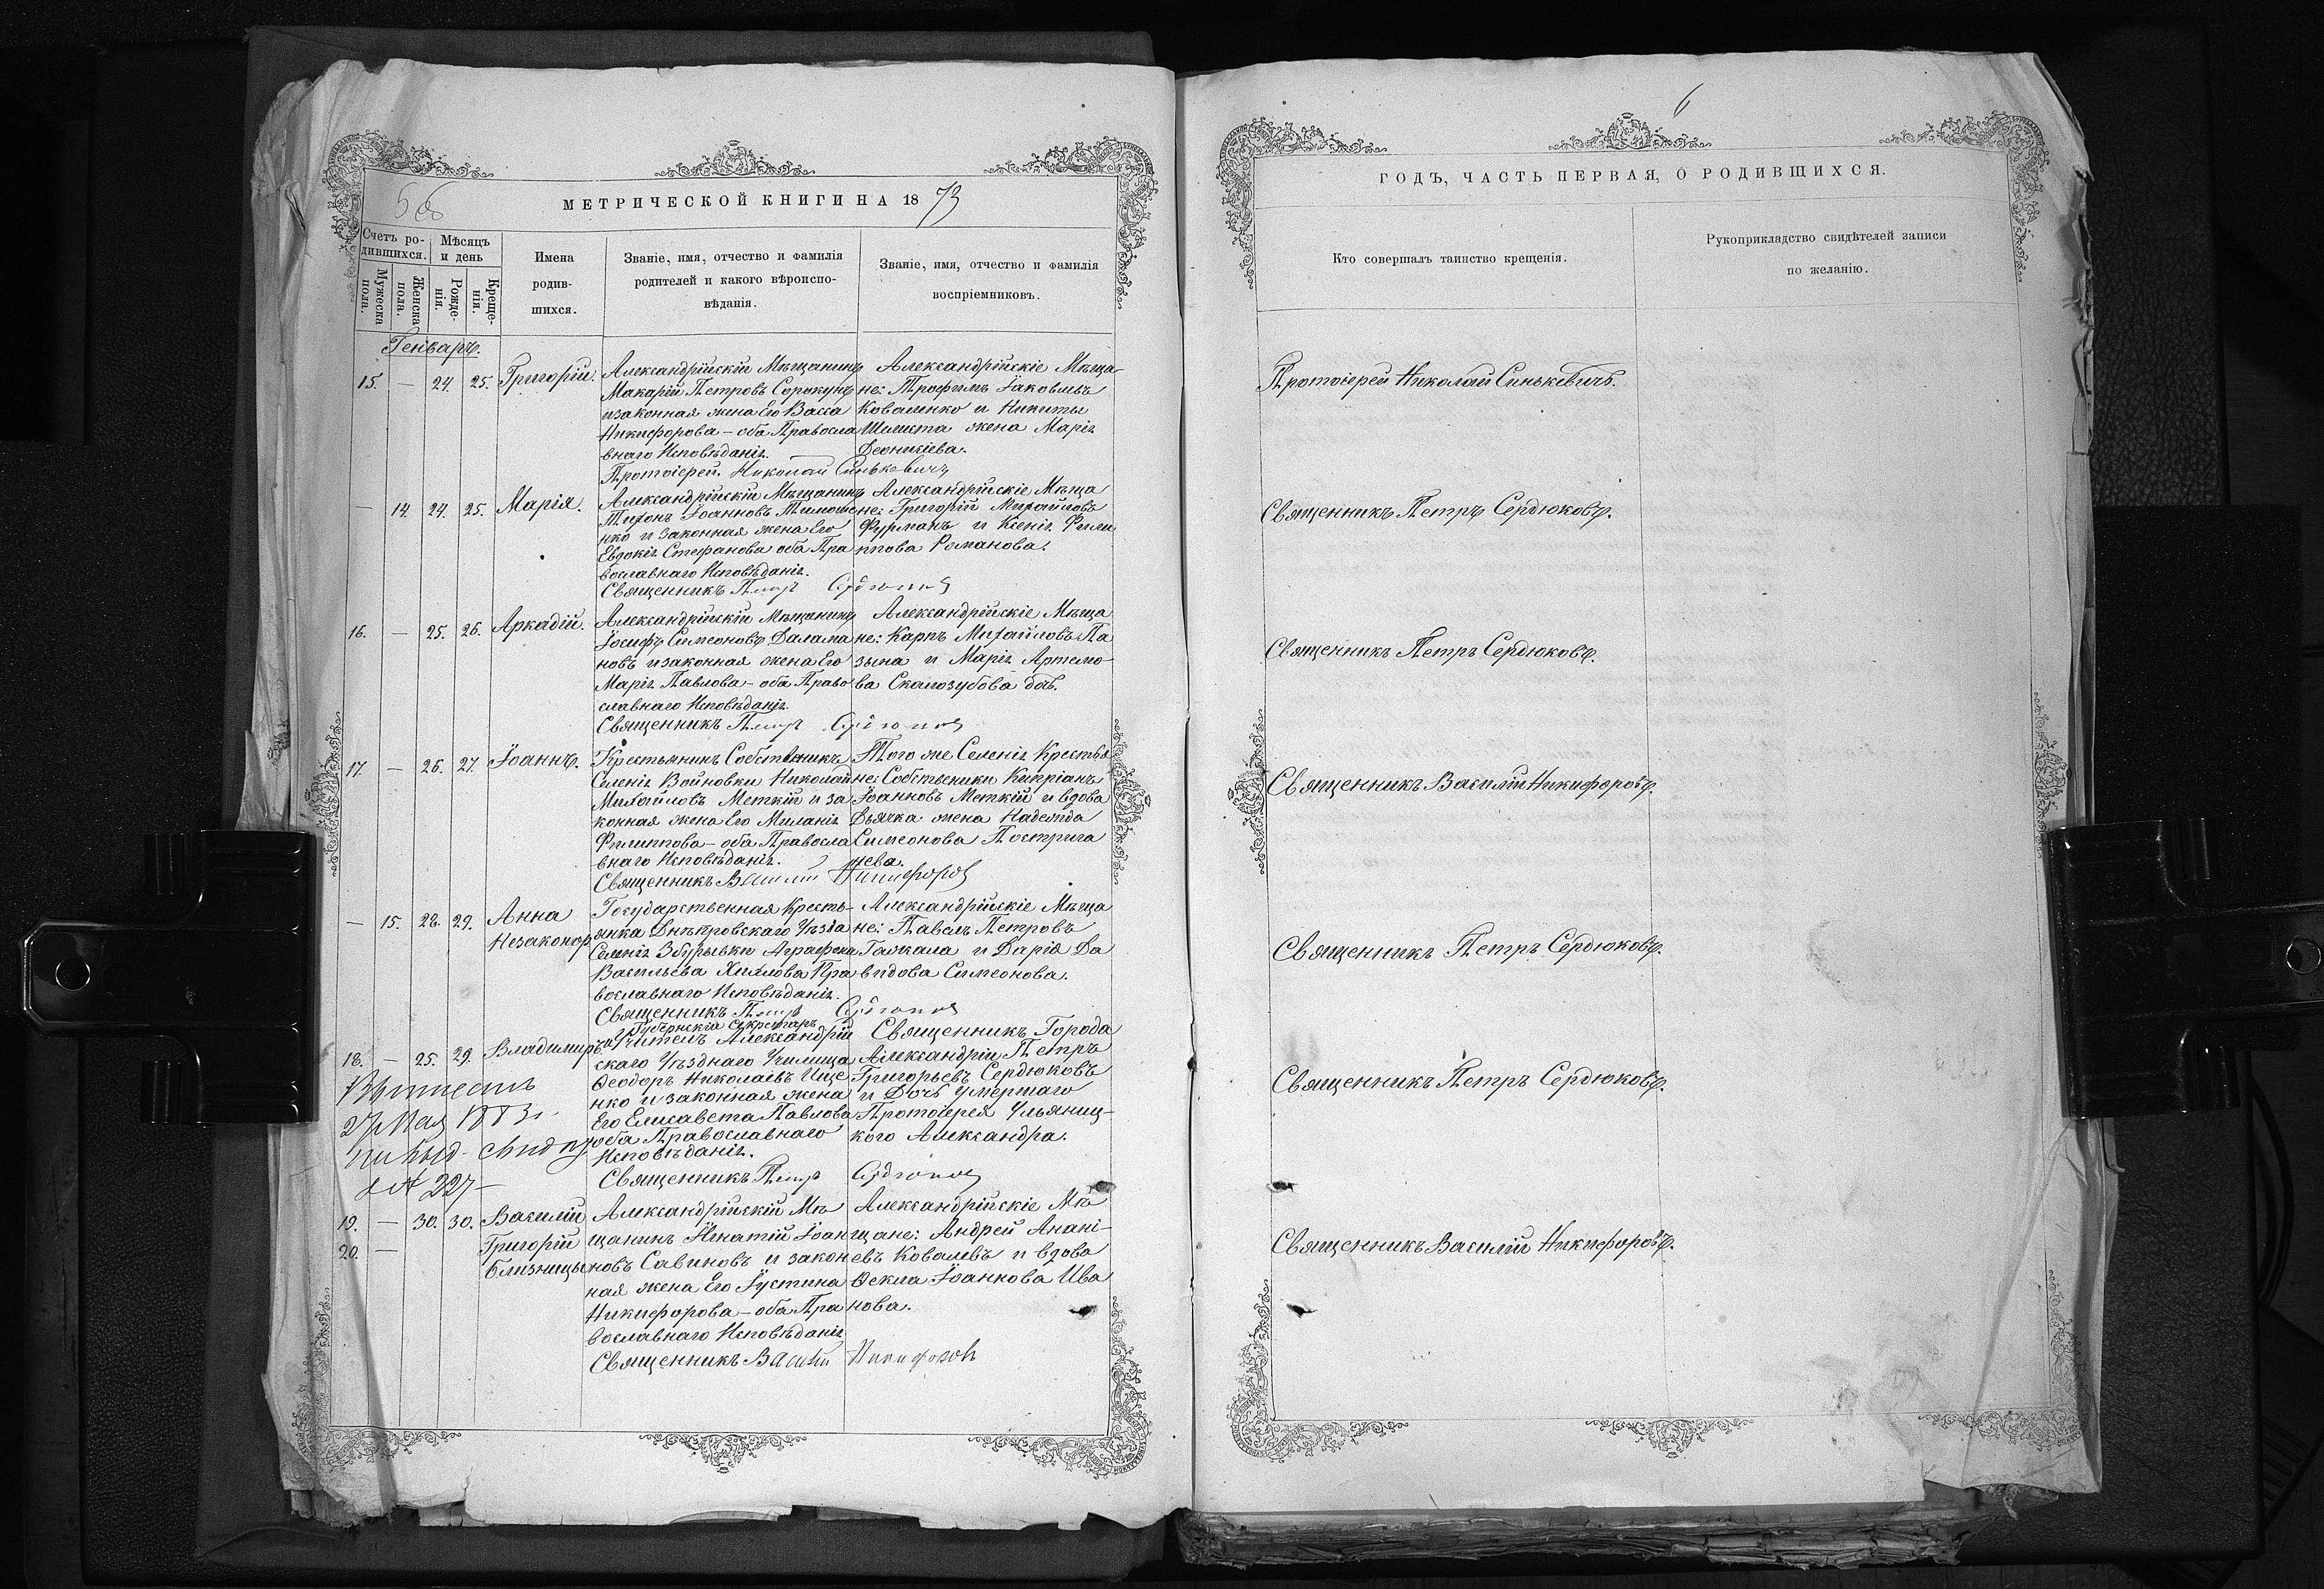 56
МЕТРИЧЕСКОЙ КНИГИ НА 1873
Счетъ ро-
дившихся.
Мужеска
пола.
Женска
пола.
Мѣсяцъ
и день
Рожде-
нія.
Креще-
нія.
Имена
родив-
шихся.
Званіе, имя, отчество и фамилія
родителей и какого вѣроиспо-
вѣданія.
Званіе, имя, отчество и фамилія
воспріемниковъ.
Генварь.
15. — 24. 25. Григорій.
Александрійскій Мѣщанинъ
Макарій Петровъ Сорокунъ
и законная жена Его Васса
Никифорова – оба Правосла
внаго Исповѣданія.
Протоіерей Николай Синькевичъ
Александрійскіе Мѣща-
не: Трофимъ Іаковлевъ
Коваленко и Никиты
Шелеста жена Марія
Леоникіева.
— 14. 24. 25. Марія.
Александрійскій Мѣщанинъ
Тихонъ Іоанновъ Тимоше
нко и законная жена Его
Евдокія Стефанова оба Пра
вославнаго Исповѣданія.
Священникъ Петръ Сердюковъ
Александрійскіе Мѣща
не: Григорій Михайловъ
Фурманъ и Ксенія Фили
ппова Романова.
16. — 25. 26. Аркадій.
Александрійскій Мѣщанинъ
Іосифъ Симеоновъ Далама
новъ и законная жена Его
Марія Павлова – оба Право
славнаго Исповѣданія.
Священникъ Петръ Сердюковъ
Александрійскіе Мѣща
не: Карпъ Михайловъ Па
зына и Марія Артемо-
ва Скалозубова дѣв.
17. — 26. 27. Іоаннъ.
Крестьянинъ Собственникъ
Селенія Войновки Николай
Михайловъ Меткій и за
конная жена Его Миланія
Филиппова – оба Правосла
внаго Исповѣданія.
Священникъ Василій Никифоровъ
Того же Селенія Крестья
не: Собственики Кипріанъ
Іоанновъ Меткій и вдова
Дьячка жена Надежда
Симеонова Пострига
нева.
— 15. 28. 29. Анна
Незаконор.
Государственная Кресть-
янка Днѣпровскаго Уѣзда
Селенія Збурьевки Аграфена
Васильева Хижлова Пра
вославнаго Исповѣданія.
Священникъ Петръ Сердюковъ
Александрійскіе Мѣща
не: Павелъ Петровъ
Галкала и Дарія Да
видова Симеонова.
18. — 25. 29. Владимиръ.
Губернскій Секретарь
Учитель Александрій
скаго Уѣзднаго Училища
Ѳеодоръ Николаевъ Ище
нко и законная жена
Его Елисавета Павлова
оба Православнаго
Исповѣданія.
Священникъ Петръ Сердюковъ
Священникъ Города
Александріи Петръ
Григорьевъ Сердюковъ
и Дочь умершаго
Протоіерея Ульяниц-
кого Александра.
27 Мая 1883 г.
№ 227 –
19. — 30. 30. Василій
20. — Григорій
близнецы
Александрійскій Мѣ
щанинъ Игнатій Іоан
новъ Савиновъ и закон
ная жена Его Іустина
Никифорова – оба Пра
вославнаго Исповѣданія
Священникъ Василій Никифоровъ
Александрійскіе Мѣ
щане: Андрей Анані-
евъ Ковалевъ и вдова
Ѳекла Іоаннова Ива
нова.
6
ГОДЪ, ЧАСТЬ ПЕРВАЯ, О РОДИВШИХСЯ.
Кто совершалъ таинство крещенія.
Рукоприкладство свидѣтелей записи
по желанію.
Протоіерей Николай Синькевичъ.
Священникъ Петръ Сердюковъ.
Священникъ Петръ Сердюковъ.
Священникъ Василій Никифоровъ.
Священникъ Петръ Сердюковъ.
Священникъ Петръ Сердюковъ.
Священникъ Василій Никифоровъ.